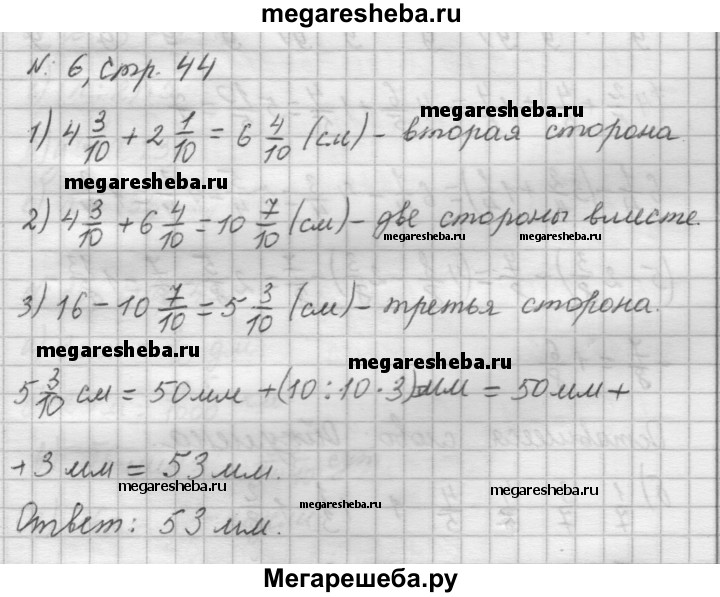 megaresheba.ru
N: 6, стр. 44
megaresheba.ru
1) 4 3/10 + 2 1/10 = 6 4/10 (см) - вторая сторона
megaresheba.ru
2) 4 3/10 + 6 4/10 = 10 7/10 (см) - две стороны вместе.
megaresheba.ru megaresheba.ru
3) 16 - 10 7/10 = 5 3/10 (см) - третья сторона.
megaresheba.ru megaresheba.ru
5 3/10 см = 50 мм + (10 : 10 · 3) мм = 50 мм +
+ 3 мм = 53 мм.
megaresheba.ru megaresheba.ru megaresheba.ru
Ответ: 53 мм.
Мегарешеба.ру